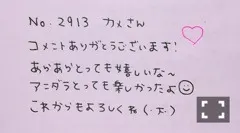 No. 2913 カメさん
コメントありがとうございます!
あらあらとっても嬉しいな〜
アニダラとっても楽しかったよ☺
これからもよろしくね(·不·)